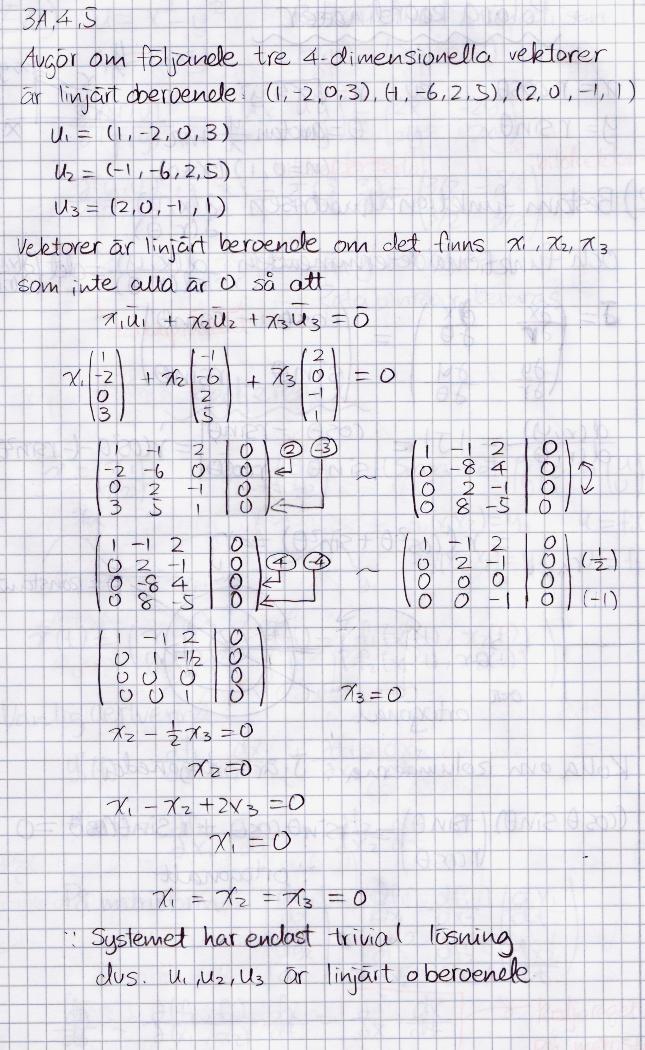 3A,4,5
Avgör om följande tre 4-dimensionella vektorer
är linjärt oberoende: (1,-2,0,3), (-1,-6,2,5), (2,0,-1,1)
u₁ = (1,-2,0,3)
u₂ = (-1,-6,2,5)
u₃ = (2,0,-1,1)
Vektorer är linjärt beroende om det finns x₁, x₂, x₃
som inte alla är 0 så att
x₁ū₁ + x₂ū₂ + x₃ū₃ = 0̄
x₁ (1 -2 0 3) + x₂ (-1 -6 2 5) + x₃ (2 0 -1 1) = 0
1 -1 2 | 0 (2) (-3) 1 -1 2 | 0
-2 -6 0 | 0 0 -8 4 | 0
0 2 -1 | 0 ~ 0 2 -1 | 0
3 5 1 | 0 0 8 -5 | 0
1 -1 2 | 0 1 -1 2 | 0
0 2 -1 | 0 (4) (-4) 0 2 -1 | 0 (1/2)
0 -8 4 | 0 ~ 0 0 0 | 0
0 8 -5 | 0 0 0 -1 | 0 (-1)
1 -1 2 | 0
0 1 -1/2 | 0
0 0 0 | 0
0 0 1 | 0 x₃ = 0
x₂ - ½x₃ = 0
x₂ = 0
x₁ - x₂ + 2x₃ = 0
x₁ = 0
x₁ = x₂ = x₃ = 0
∵ Systemet har endast trivial lösning
dvs. u₁, u₂, u₃ är linjärt oberoende